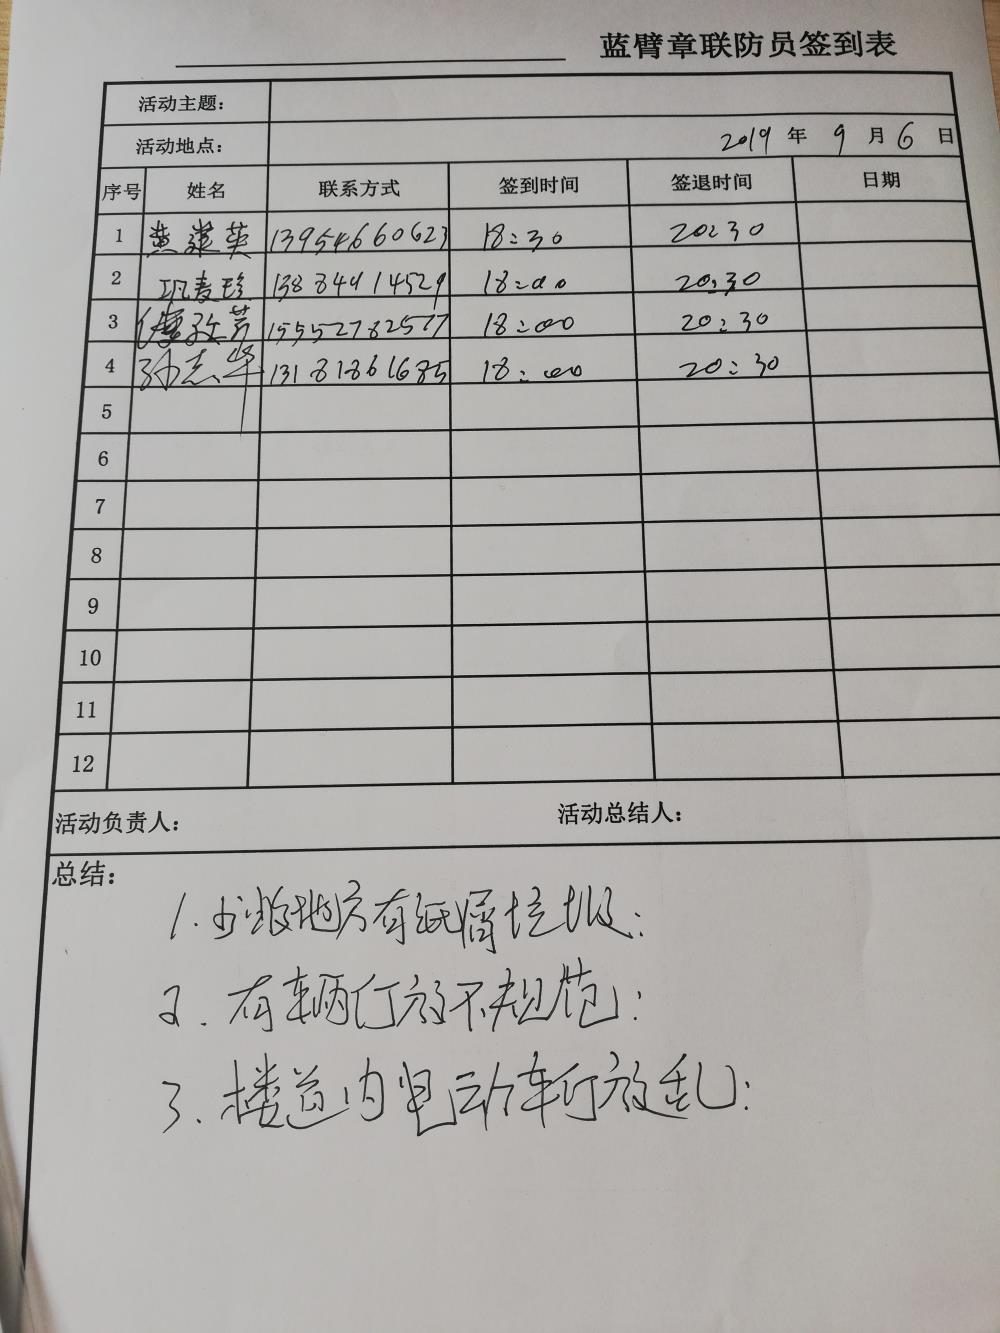 蓝臂章联防员签到表
活动主题：
活动地点： 2019 年 9 月 6 日
序号 姓名 联系方式 签到时间 签退时间 日期
1 黄 英 13954660623 18:30 20:30
2 巩麦珍 13884414529 18:00 20:30
3 芳 15552782577 18:00 20:30
4 孙志华 13181861685 18:00 20:30
5
6
7
8
9
10
11
12
活动负责人： 活动总结人：
总结：
1. 少数地方有纸屑垃圾;
2. 有车辆停放不规范;
3. 楼道内电动车停放乱;